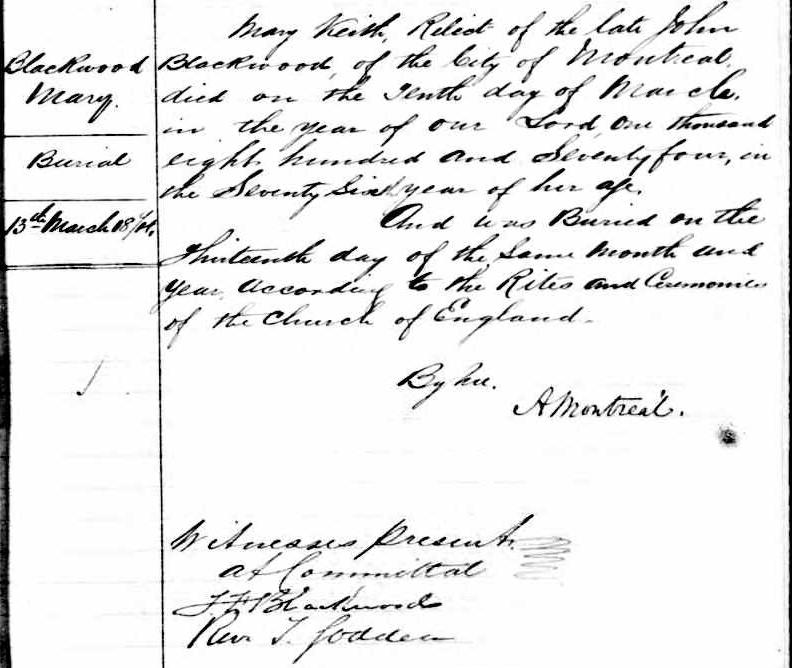 Blackwood
Mary.
Burial
13th March 1874.
Mary Keith, Relict of the late John
Blackwood, of the City of Montreal,
died on the Tenth day of March,
in the year of our Lord, one thousand
eight hundred and Seventy four, in
the Seventy Sixth year of her age.
And was Buried on the
Thirteenth day of the Same Month and
year according to the Rites and Ceremonies
of the Church of England.
By me.
A Montreal.
Witnesses Present
at Committal
Blackwood
Rev. J. Godden